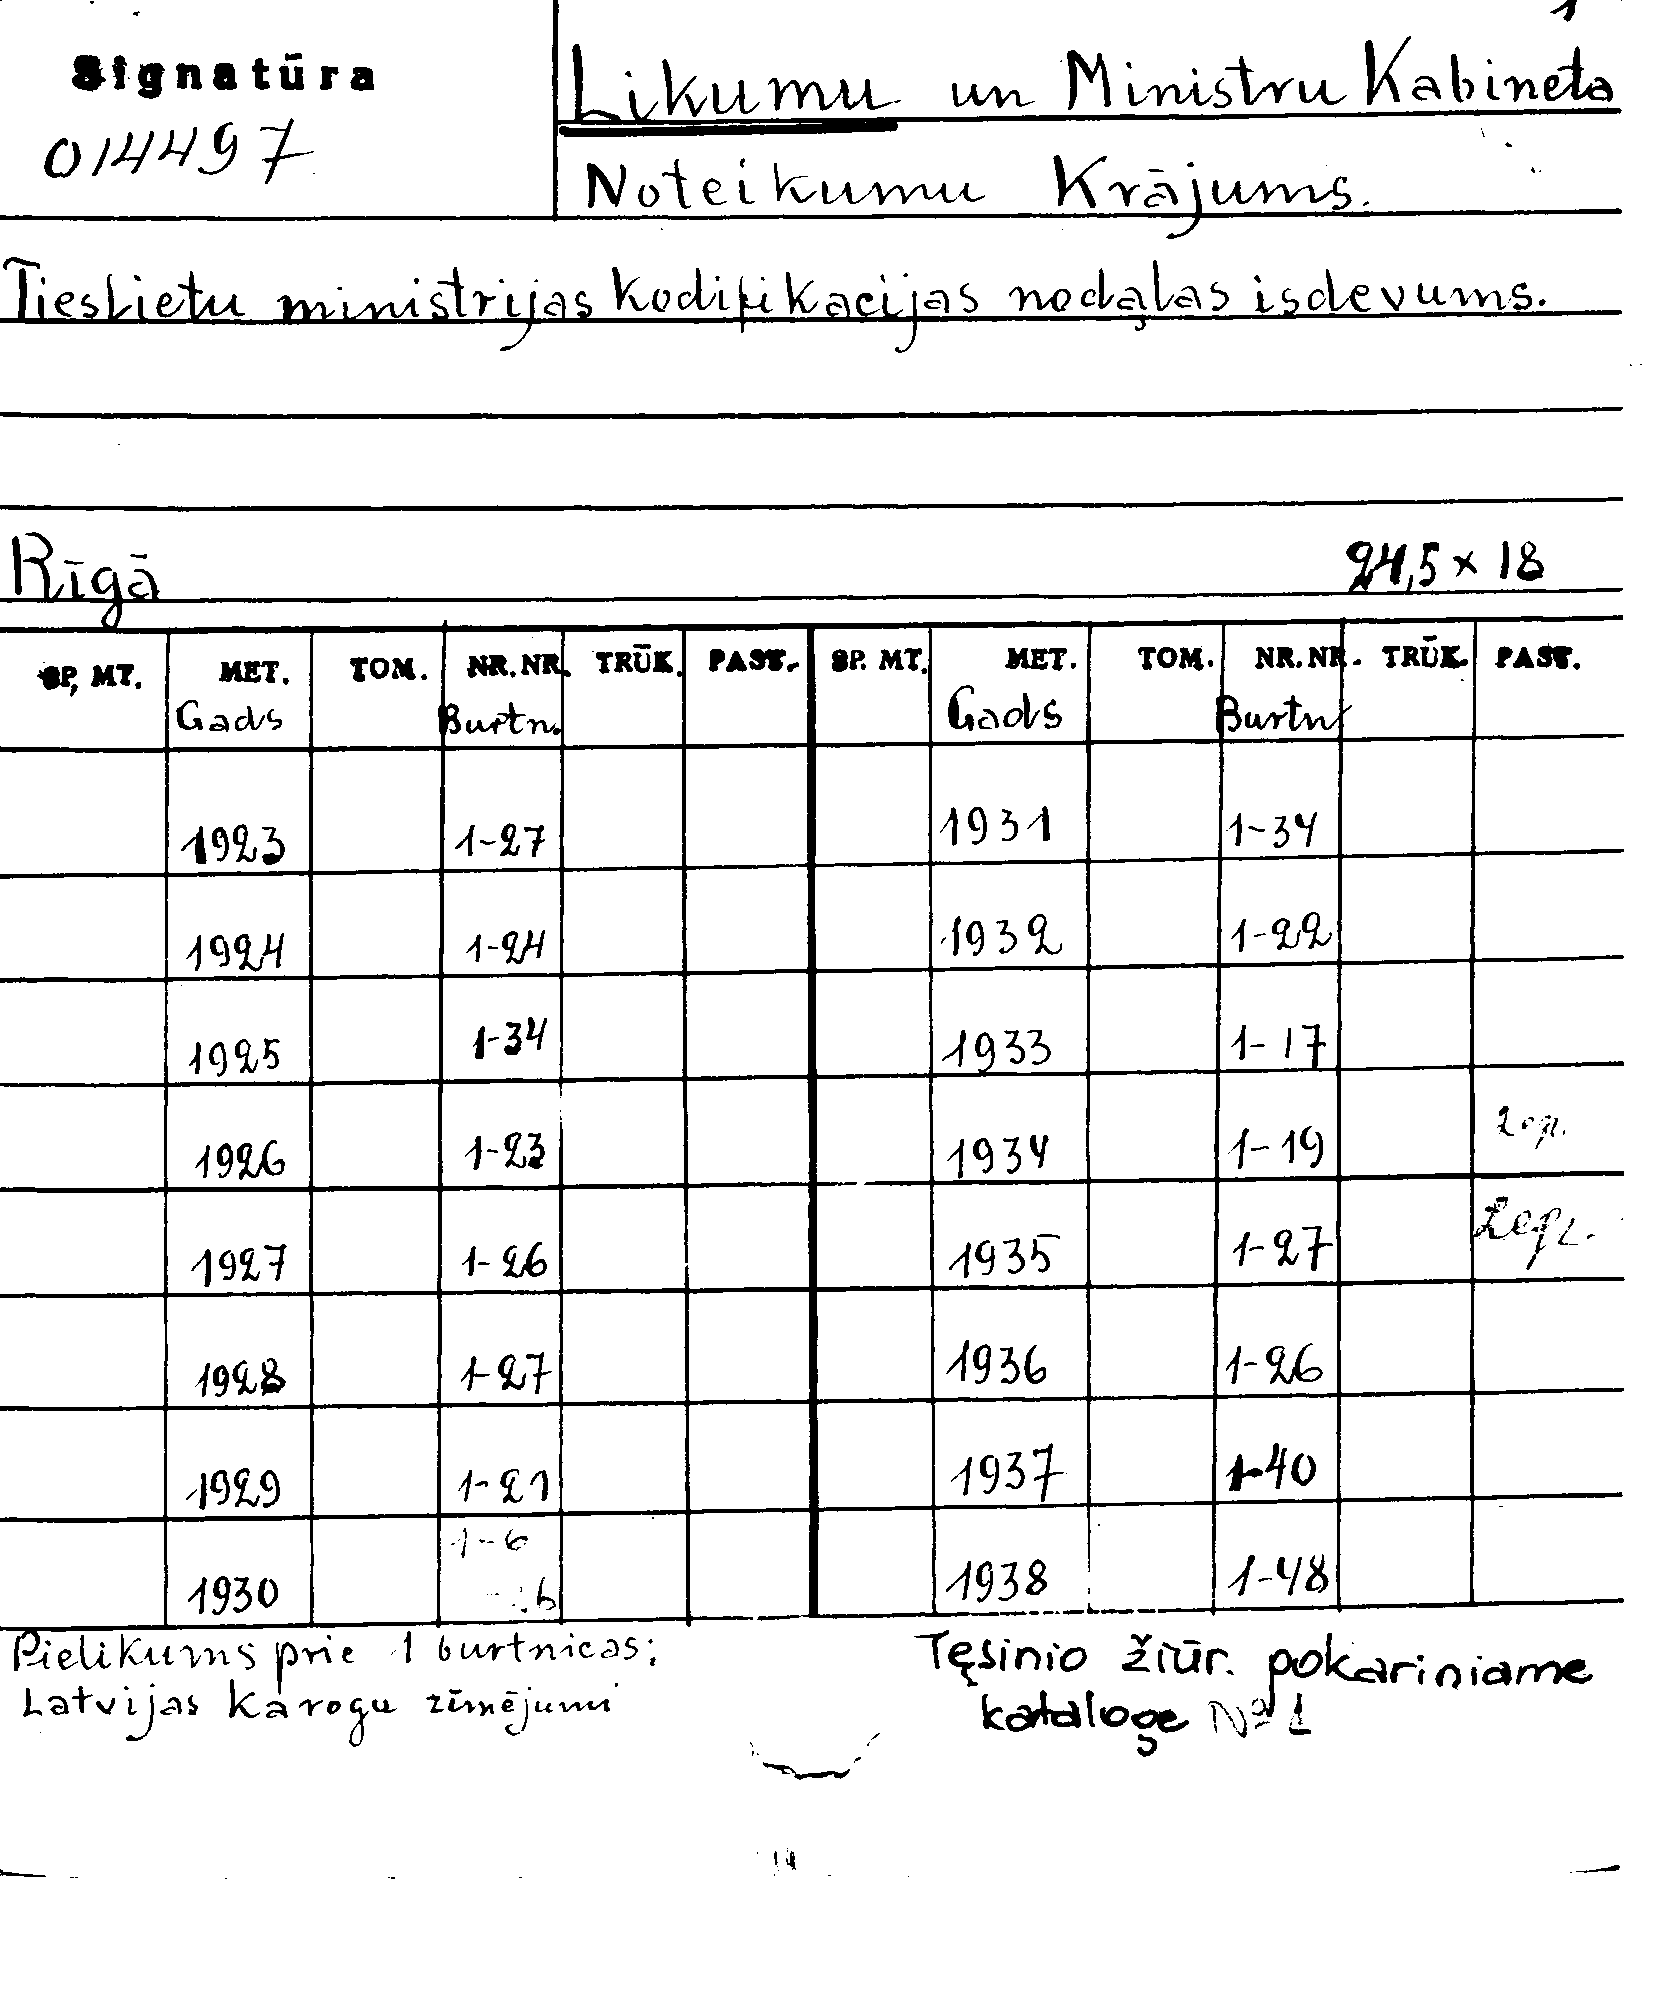 1
Signatūra
014497
Likumu un Ministru Kabineta
Noteikumu Krājums.
Tieslietu ministrijas kodifikacijas nodaļas isdevums.
Rīgā 24,5 × 18
SP. MT. MET. TOM. NR. NR. TRŪK. PAST. SP. MT. MET. TOM. NR. NR. TRŪK. PAST.
Gads Burtn. Gads Burtn.
1923 1-27 1931 1-34
1924 1-24 1932 1-22
1925 1-34 1933 1-17
1926 1-23 1934 1-19 2 egz.
1927 1-26 1935 1-27 2 egz.
1928 1-27 1936 1-26
1929 1-21 1937 1-40
1-6
1930 1938 1-48
Pielikums prie 1 burtnicas;
Latvijas Karogu zīmējumi
Tęsinio žiūr. pokariniame
kataloge Nº 1